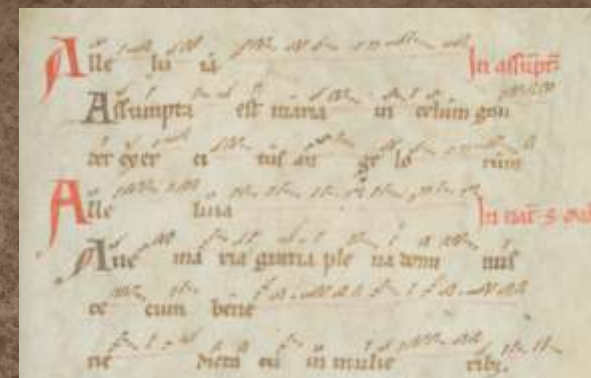 Alle lu ia In assūpt
Assumpta est maria in celum gau
det exer ci tus an ge lo rum
Alle luia In nat s
Aue ma ria gratia ple na domi nus
te cum bene
ne dicta tu in mulie ribꝫ.